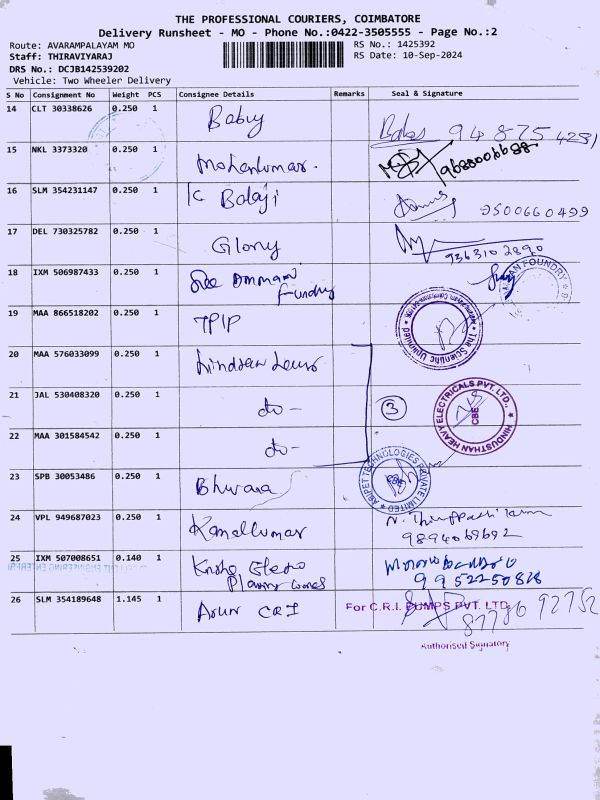 THE PROFESSIONAL COURIERS, COIMBATORE
Delivery Runsheet - MO - Phone No.:0422-3505555 - Page No.:2
Route: AVARAMPALAYAM MO
Staff: THIRAVIYARAJ
DRS No.: DCJB142539202
Vehicle: Two Wheeler Delivery
RS No.: 1425392
RS Date: 10-Sep-2024
S No Consignment No Weight PCS Consignee Details Remarks Seal & Signature
14 CLT 30338626 0.250 1 Babuy
15 NKL 3373320 0.250 1 Mohankumar. 9688006688
16 SLM 354231147 0.250 1 K Balaji 9500660499
17 DEL 730325782 0.250 1 Glory 936310 2890
18 IXM 506987433 0.250 1 Sree Ammani
Foundry
19 MAA 866518202 0.250 1 TPIP
20 MAA 576033099 0.250 1
21 JAL 530408320 0.250 1 do - 3
22 MAA 301584542 0.250 1 do -
HINDUSTHAN HEAVY ELECTRICALS PVT. LTD.,
CBE
23 SPB 30053486 0.250 1 Bhuvana
TECHNOLOGIES PRIVATE LIMITED
24 VPL 949687023 0.250 1 Kamalkumar
9894069692
25 IXM 507008651 0.140 1
9952250828
26 SLM 354189648 1.145 1 Arun CRI
For C.R.I. PUMPS PVT. LTD
Authorised Signatory